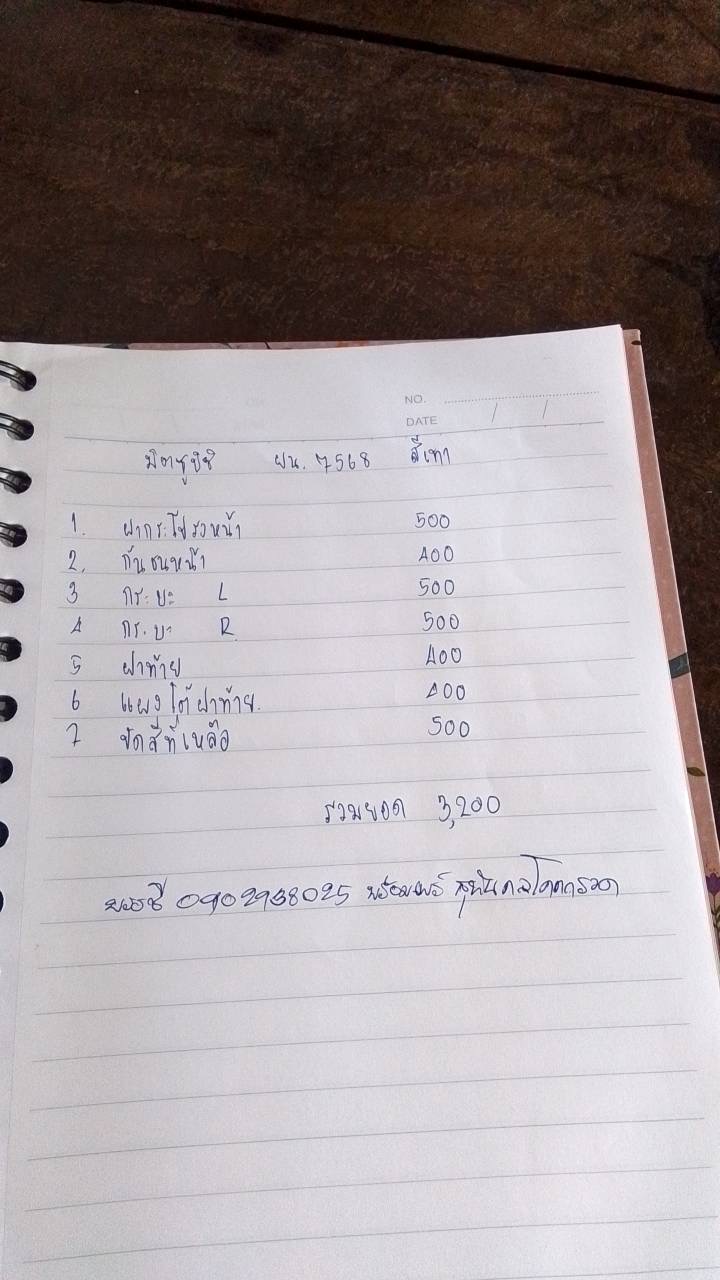 NO.
DATE / /
มิตซูบิชิ ผน. 7568 สีเทา
1. ฝากระโปรงหน้า 500
2. กันชนหน้า 400
3 กระบะ L 500
4 กระบะ R 500
5 ฝาท้าย 400
6 แผงใต้ฝาท้าย. 400
7 ขัดสีที่เหลือ 500
รวมยอด 3,200
บชธ 0902938025 พร้อมพร